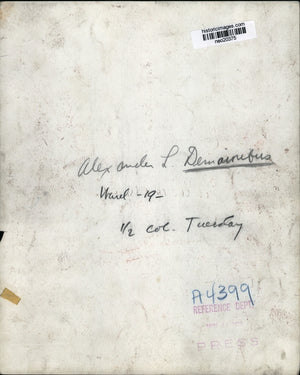 historicimages.com
neo20375
Alexander L
Ward -19-
1/2 col. Tuesday
A4399
REFERENCE DEPT.
PRESS